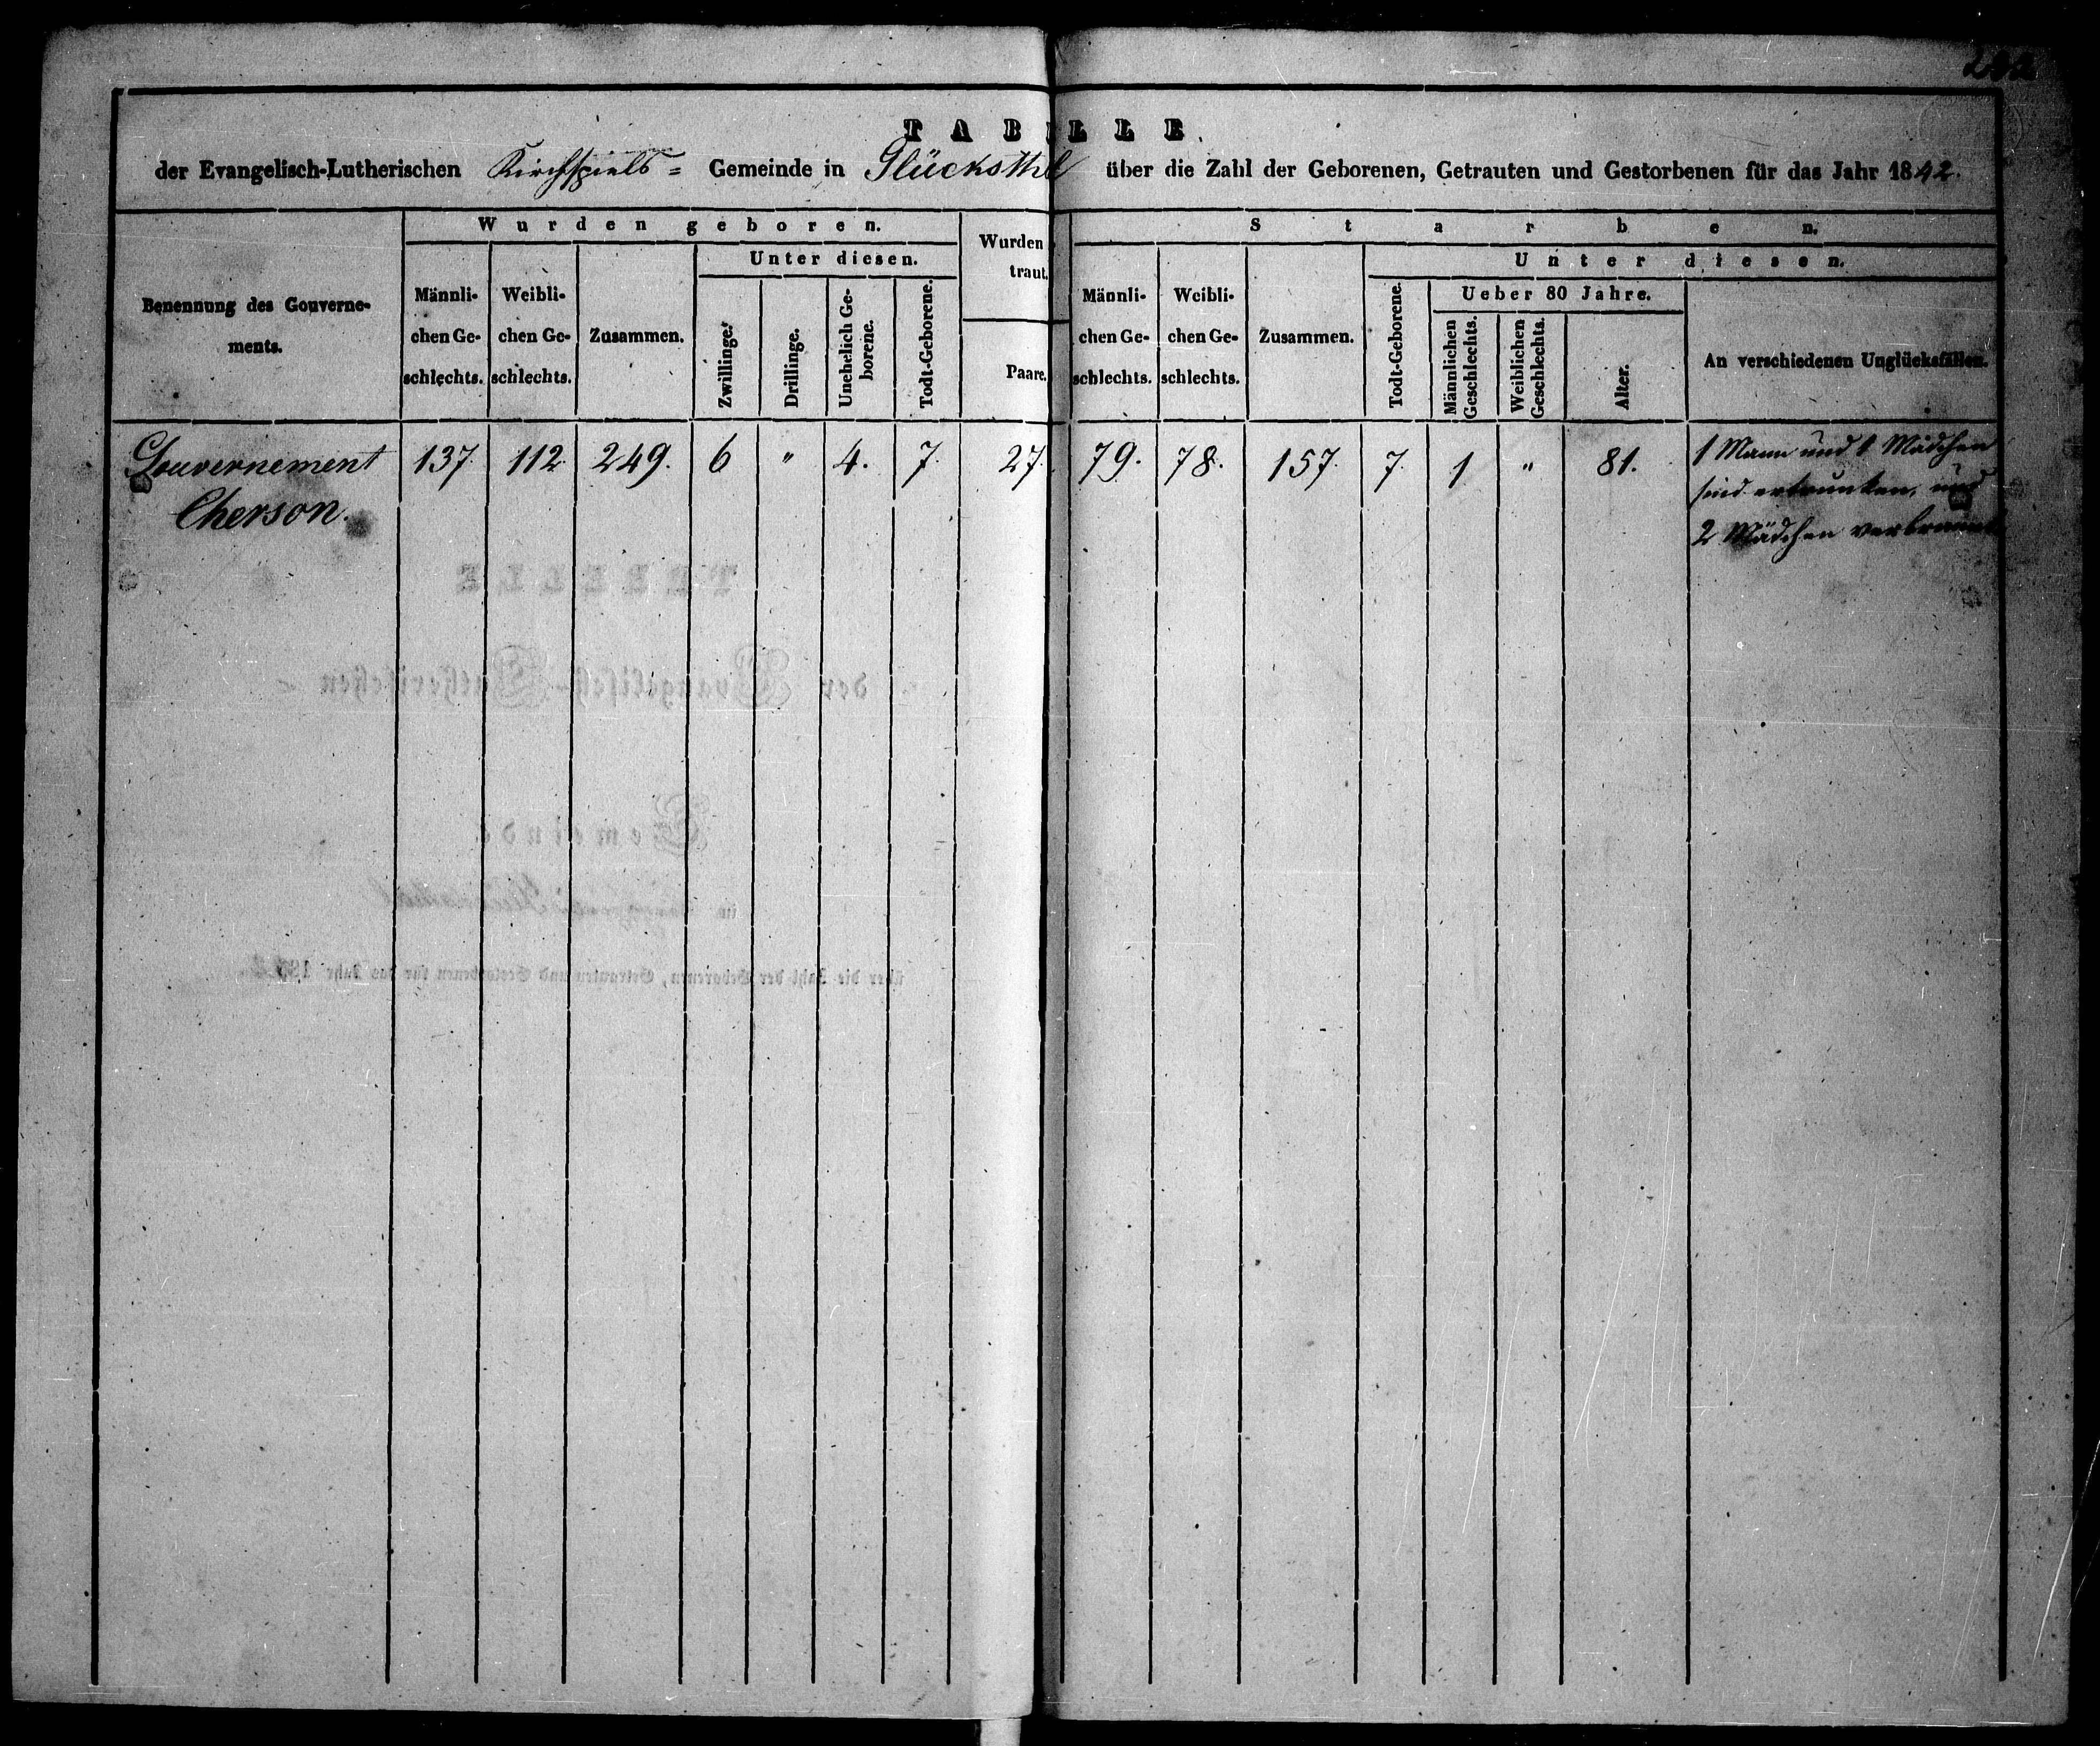 TABELLE
der Evangelisch-Lutherischen Kirchspiels = Gemeinde in Glücksthal über die Zahl der Geborenen, Getrauten und Gestorbenen für das Jahr 1842.
Benennung des Gouverne-
ments.
Wurden geboren.
Männli-
chen Ge-
schlechts.
Weibli-
chen Ge-
schlechts.
Zusammen.
Unter diesen.
Zwillinge.
Drillinge.
Unehelich Ge-
borene.
Todt-Geborene.
Wurden
traut.
Paare.
Starben.
Männli-
chen Ge-
schlechts.
Weibli-
chen Ge-
schlechts.
Zusammen.
Unter diesen.
Todt-Geborene.
Ueber 80 Jahre.
Männlichen
Geschlechts.
Weiblichen
Geschlechts.
Alter.
An verschiedenen Unglücksfällen.
Gouvernement 137. 112. 249. 6 " 4. 7. 27. 79. 78. 157. 7. 1 " 81. 1 Mann und 1 Mädchen
Cherson. sind ertrunken, und
2 Mädchen verbrannt
TABELLE
der Evangelisch-Lutherischen
Gemeinde
im
über die Zahl der Geborenen, Getrauten und Gestorbenen für das Jahr 1842.